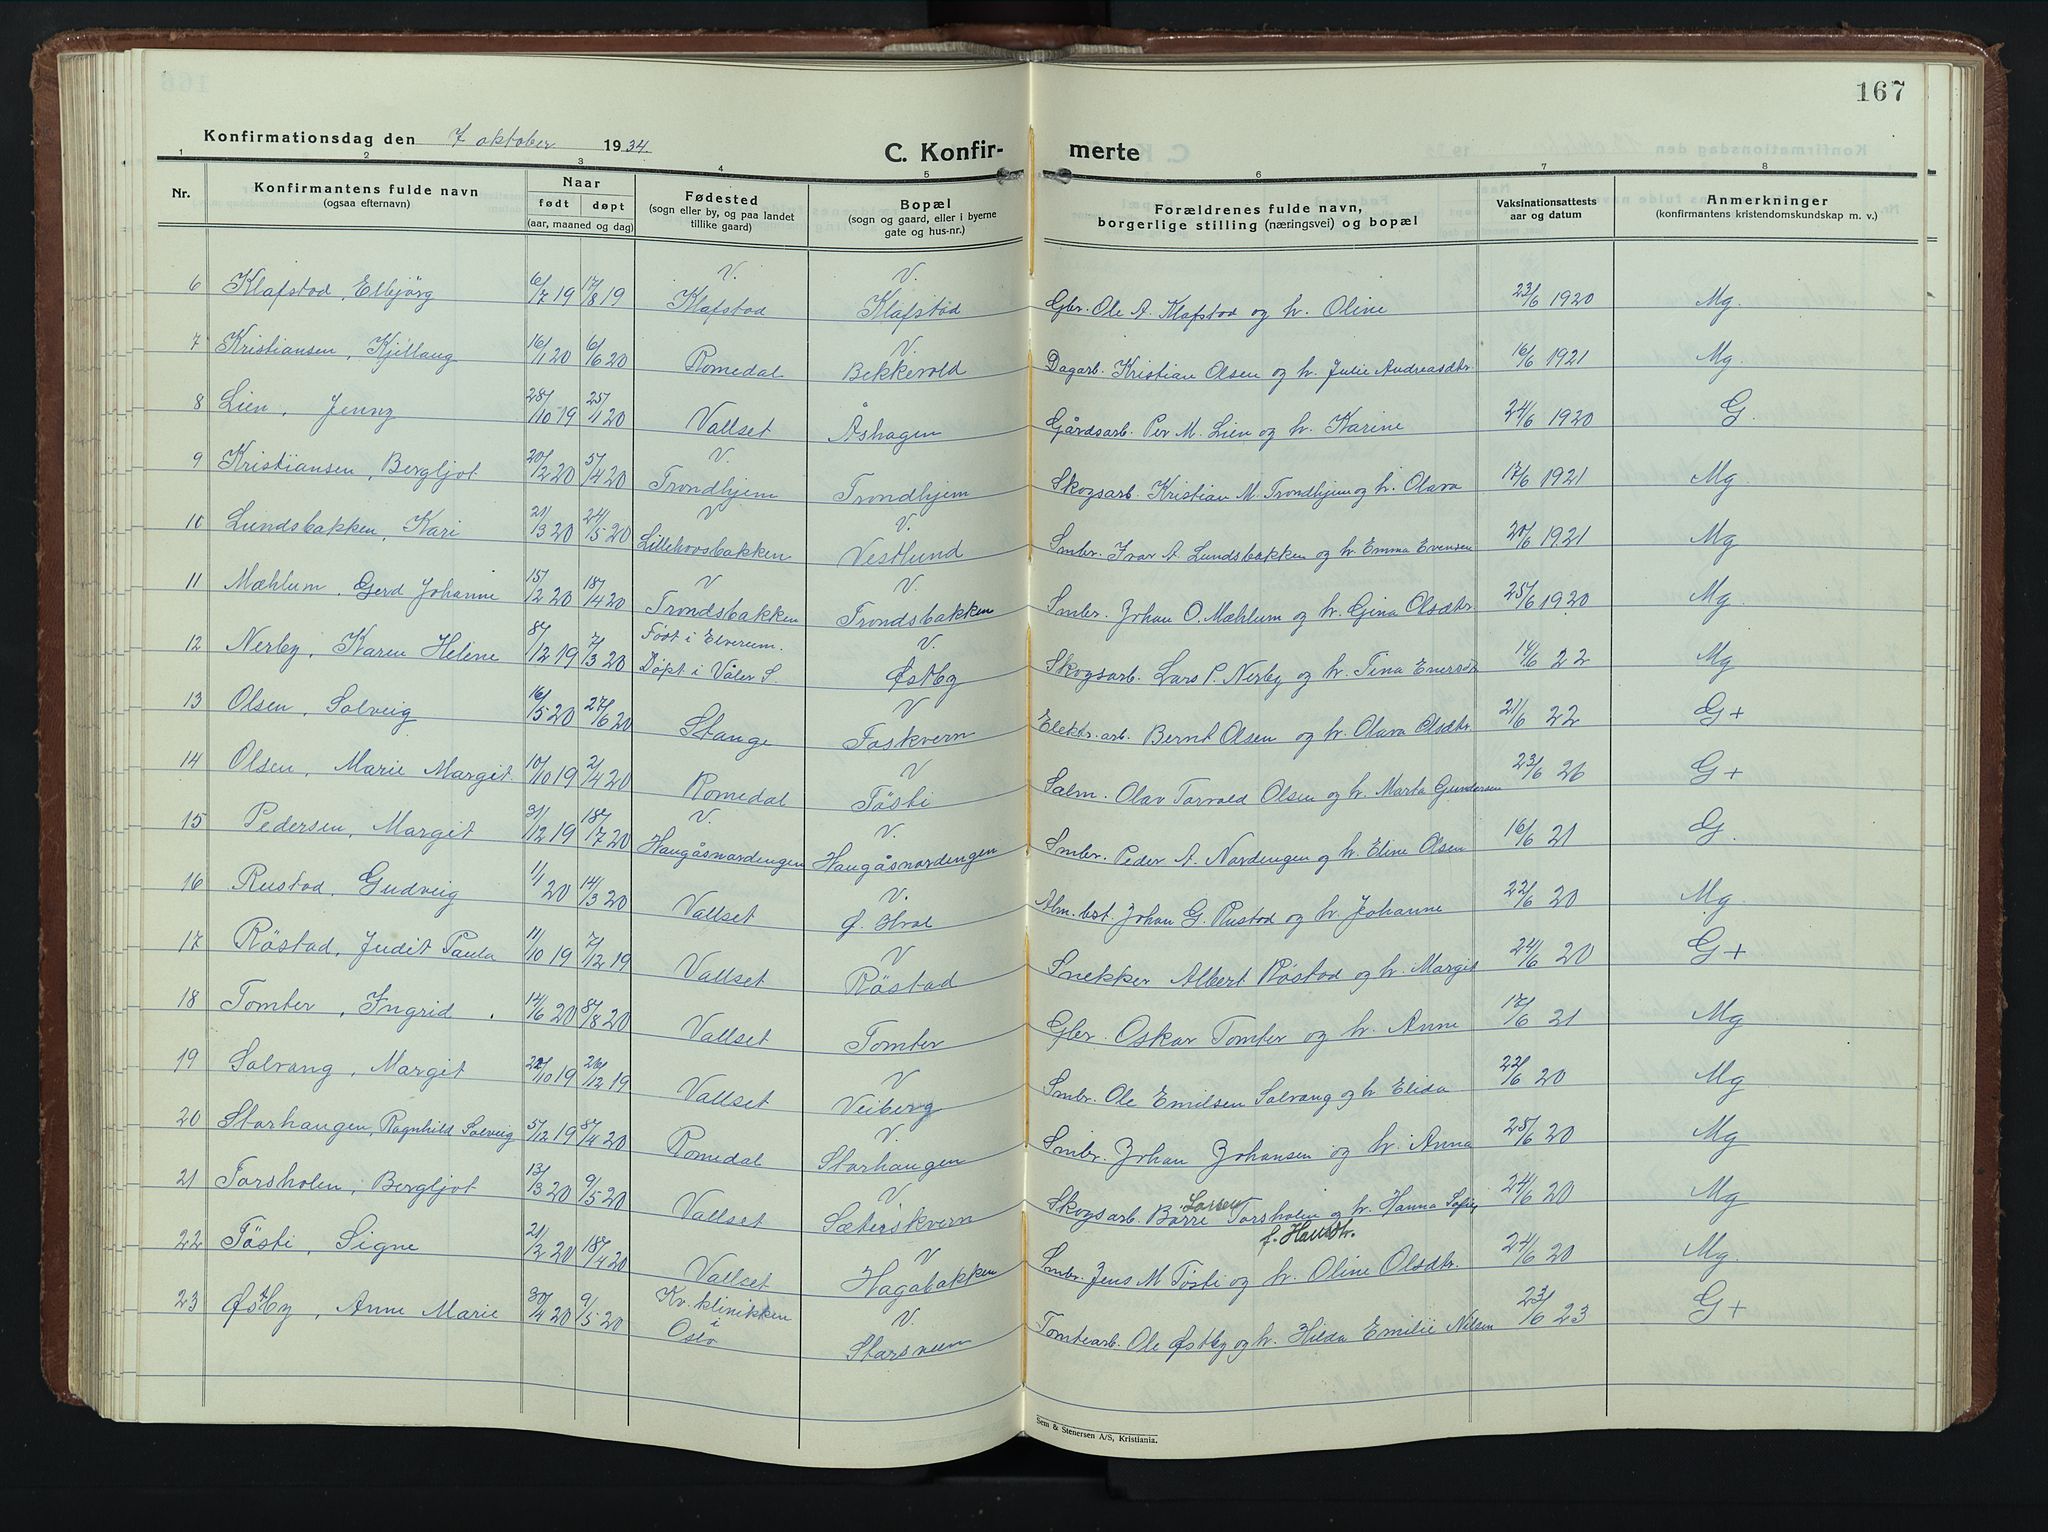 167
Konfirmationsdag den 7 oktober 1934.
C. Konfirmerte
1 2 3 4 5 6 7 8
Nr. Konfirmantens fulde navn (ogsaa efternavn) Naar født døpt (aar, maaned og dag) Fødested (sogn eller by, og paa landet tillike gaard) Bopæl (sogn og gaard, eller i byerne gate og hus-nr.) Forældrenes fulde navn, borgerlige stilling (næringsvei) og bopæl Vaksinationsattests aar og datum Anmerkninger (konfirmantens kristendomskundskap m. v.)
6 Klafstad, Elbjörg 6/7 19 17/8 19 V. Klafstad V. Klafstad Gbr. Ole A. Klafstad og h. Oline 23/6 1920 Mg.
7 Kristiansen, Kjellaug 16/1 20 6/6 20 Romedal V. Bekkevold Dagarb. Kristian Olsen og h. Julie Andreasdtr. 16/6 1921 Mg.
8 Lien, Jenny 28/10 19 25/1 20 Vallset Åshagen Gårdsarb. Per M. Lien og h. Karine 24/6 1920 G.
9 Kristiansen, Bergljot 20/2 20 5/4 20 V. Trondhjem Trondhjem Skogsarb. Kristian M. Trondhjem og h. Olava 17/6 1921 Mg.
10 Lundsbakken, Kari 21/3 20 24/5 20 V Lillehovsbakken V. Vestlund Smbr. Ivar A. Lundsbakken og h. Emma Evensen 20/6 1921 Mg
11 Mæhlum, Gerd Johanne 15/2 20 18/4 20 V Trondsbakken V. Trondsbakken Smbr. Johan O. Mæhlum og h. Gina Olsdtr. 25/6 1920 Mg.
12 Nerby, Karen Helene 8/12 19 7/3 20 Født i Elverum. Døpt i Våler S. V. Østby Skogsarb. Lars P. Nerby og h. Tina Enersdr 14/6 22 Mg
13 Olsen, Solveig 16/5 20 27/6 20 Stange V Foskvern Elektr.arb. Bernt Olsen og h. Olava Olsdtr. 21/6 22 G+
14 Olsen, Marie Margit. 10/10 19 2/4 20 Romedal V Tösti Salm. Olav Torvald Olsen og h. Marta Gundersen 23/6 26 G+
15 Pedersen, Margit 31/12 19 18/7 20 V. Haugåsnordengen V. Haugåsnordengen Smbr. Peder A. Nordengen og h. Eline Olsen 16/6 21 G.
16 Rustad, Gudveig 1/1 20 14/3 20 Vallset V. Ø. Hval Alm.bst. Johan G. Rustad og h. Johanne 22/6 20 Mg.
17 Röstad, Judit Paula 11/10 19 7/12 19 Vallset V Röstad Snekker Albert Röstad og h. Margit 24/6 20 G+
18 Tomter, Ingrid. 14/6 20 8/8 20 Vallset Tomter Gbr. Oskar Tomter og h. Anne 17/6 21 Mg
19 Solvang, Margit 22/10 19 26/12 19 Vallset V Veiberg Smbr. Ole Emilsen Solvang og h. Elida 22/6 20 Mg
20 Storhaugen, Ragnhild Solveig 5/12 19 8/4 20 Romedal V. Storhaugen Smbr. Johan Johansen og h. Anna 25/6 20 Mg
21 Torsholen, Bergljot 13/3 20 9/5 20 Vallset V Sæterskvern Skogsarb. Börre Larsen Torsholen og h. Hanna Sofie f. Hansdtr. 24/6 20 Mg
22 Tösti, Signe 21/2 20 18/4 20 Vallset V Hagabakken Smbr. Jens M Tösti og h. Oline Olsdtr. 24/6 20 Mg.
23 Østby, Anne Marie 30/4 20 9/5 20 Kv. klinikken i Oslo V. Storsveen Tomtearb. Ole Østby og h. Hilda Emilie Nilsen 23/6 23 G+
Sem & Stenersen A/S, Kristiania.